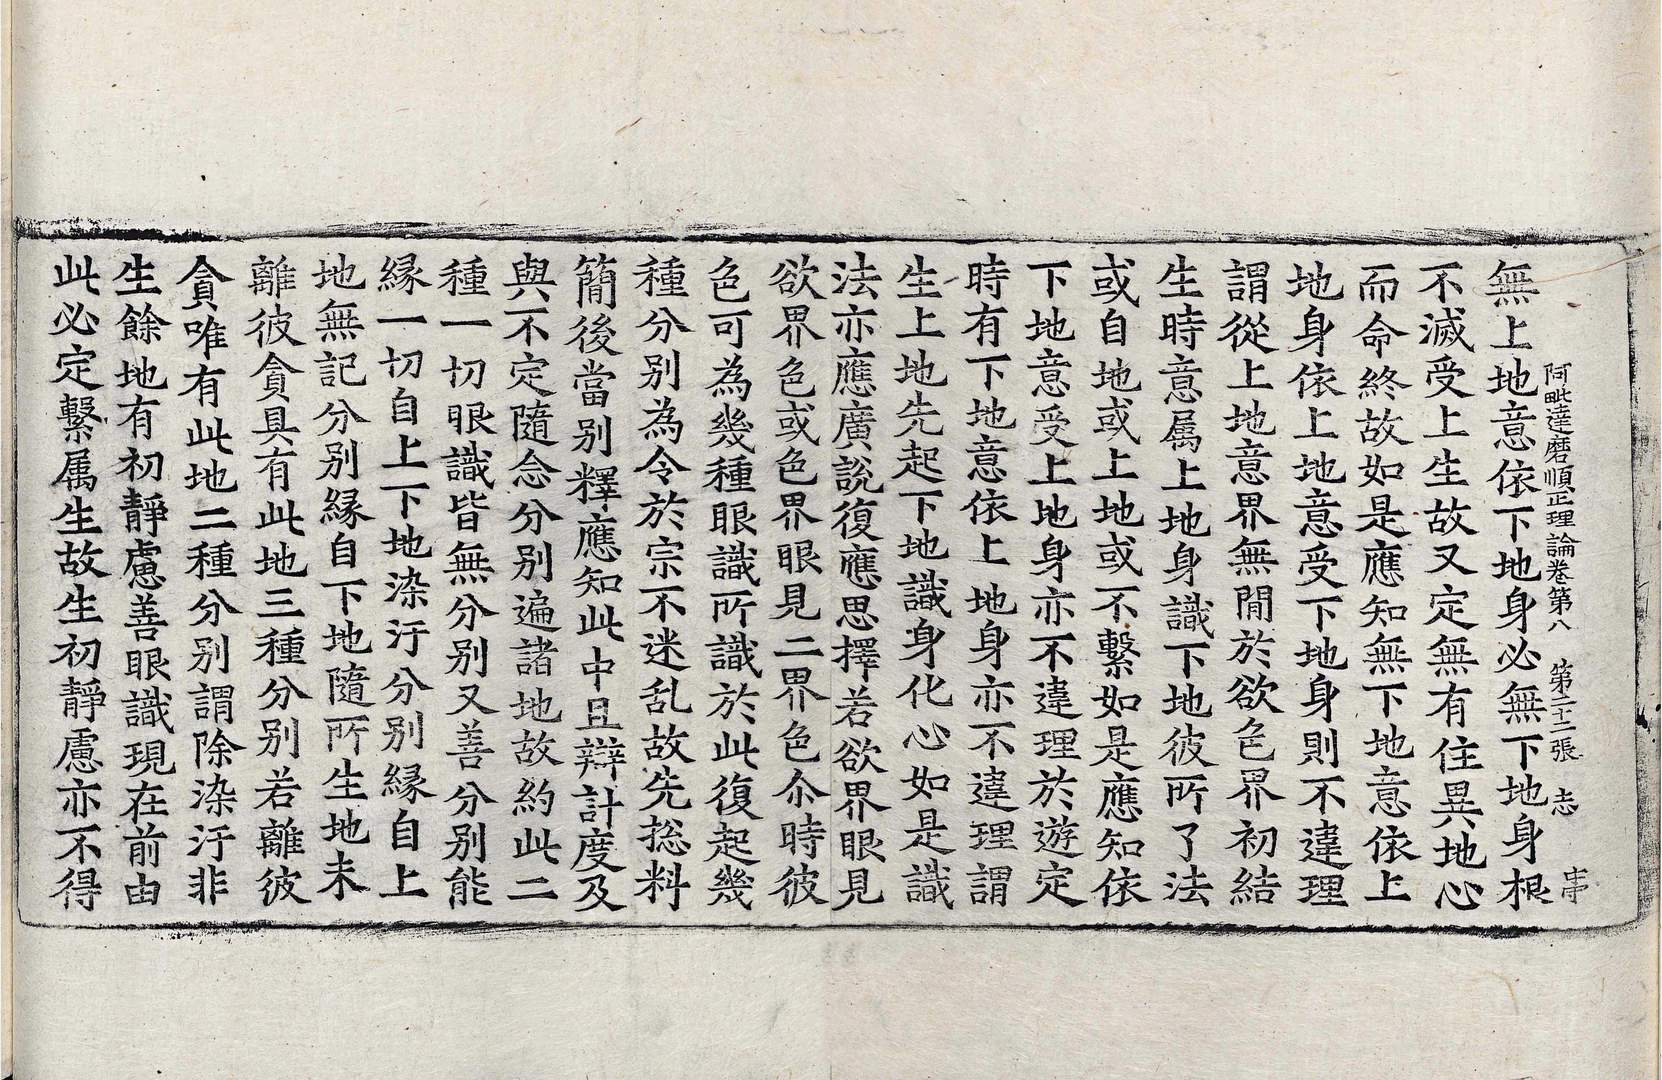 阿毗達磨順正理論卷第八　第二十二張　志
無上地意依下地身必無下地身根
不滅受上生故又定無有住異地心
而命終故如是應知無下地意依上
地身依上地意受下地身則不違理
謂從上地意界無間於欲色界初結
生時意属上地身識下地彼所了法
或自地或上地或不繫如是應知依
下地意受上地身亦不違理於遊定
時有下地意依上地身亦不違理謂
生上地先起下地識身化心如是識
法亦應廣說復應思擇若欲界眼見
欲界色或色界眼見二界色尒時彼
色可為幾種眼識所識於此復起幾
種分別為令於宗不迷乱故先捴料
簡後當別釋應知此中且辯計度及
與不定隨念分別遍諸地故約此二
種一切眼識皆無分別又善分別能
縁一切自上下地染汙分別縁自上
地無記分別縁自下地隨所生地未
離彼貪具有此地三種分別若離彼
貪唯有此地二種分別謂除染汙非
生餘地有初靜慮善眼識現在前由
此必定繫属生故生初靜慮亦不得